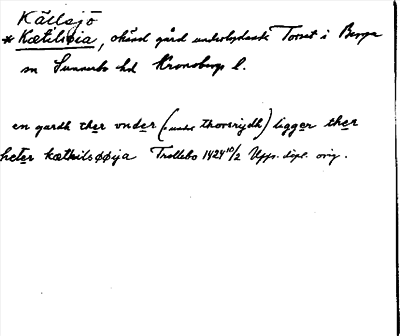 Källsjö
* Kætilsøia, okänd gård underlydande Torset i Berga
sn Sunnerbo hd Kronobergs l.
en gardh ther vnder (: under thorsrijdh) ligger ther
heter kæthilsøøija Trollebo 1424 10/2 Upps. dipl. orig.